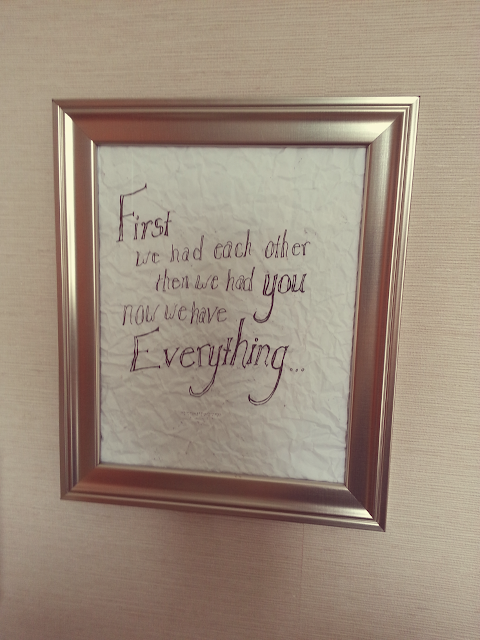 First
we had each other
then we had you
now we have
Everything...